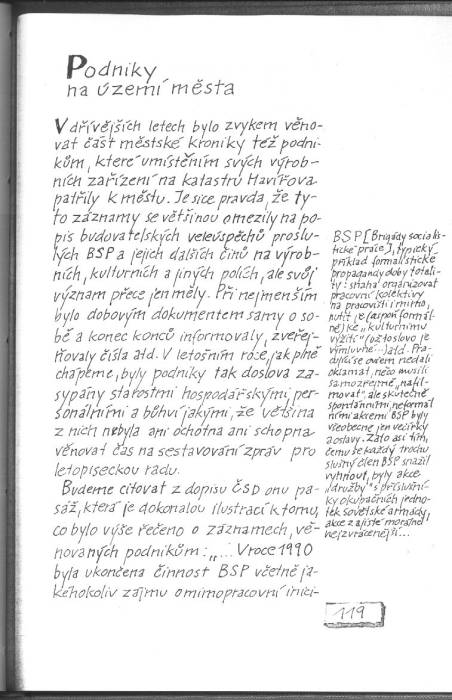 Podniky
na území města
V dřívějších letech bylo zvykem věno-
vat část městské kroniky též podni-
kům, které umístěním svých výrob-
ních zařízení na katastru Havířova
patřily k městu. Je sice pravda, že ty-
to záznamy se většinou omezily na po-
pis budovatelských veleúspěchů proslu-
lých BSP a jejich dalších činů na výrob-
ních, kulturních a jiných polích, ale svůj
význam přece jen měly. Při nejmenším
bylo dobovým dokumentem samo o so-
bě a konec konců informovaly, zveřej-
ňovaly čísla atd. V letošním roce, jak plně
chápeme, byly podniky tak doslova za-
sypány starostmi hospodářskými, per-
sonálními a bůhví jakými, že většina
z nich nebyla ani ochotna ani schopna
věnovat čas na sestavování zpráv pro
letopiseckou radu.
Budeme citovat z dopisu ČSD onu pa-
sáž, která je dokonalou ilustrací k tomu,
co bylo výše řečeno o záznamech, vě-
novaných podnikům: „... V roce 1990
byla ukončena činnost BSP včetně ja-
kéhokoliv zájmu o mimopracovní inici-
BSP [Brigády socialis-
tické práce], typický
příklad formalistické
propagandy doby totali-
ty: snaha organizovat
pracovní kolektivy
na pracovišti i mimo,
nutit je (aspoň formál-
ně) ke „kulturnímu
vyžití" (ož to slovo je
výmluvné...) atd. Pra-
cující se ovšem nedali
oklamat, něco museli
samozřejmě „nafil-
movat", ale skutečně
spontánními, neformál-
ními akcemi BSP byly
všeobecně jen večírky
a oslavy. Zato asi tím,
čemu se každý trochu
slušný člen BSP snažil
vyhnout, byly akce
„družby" s příslušní-
ky okupačních jedno-
tek sovětské armády,
akce zajisté morálně
nejzvrácenější...
119